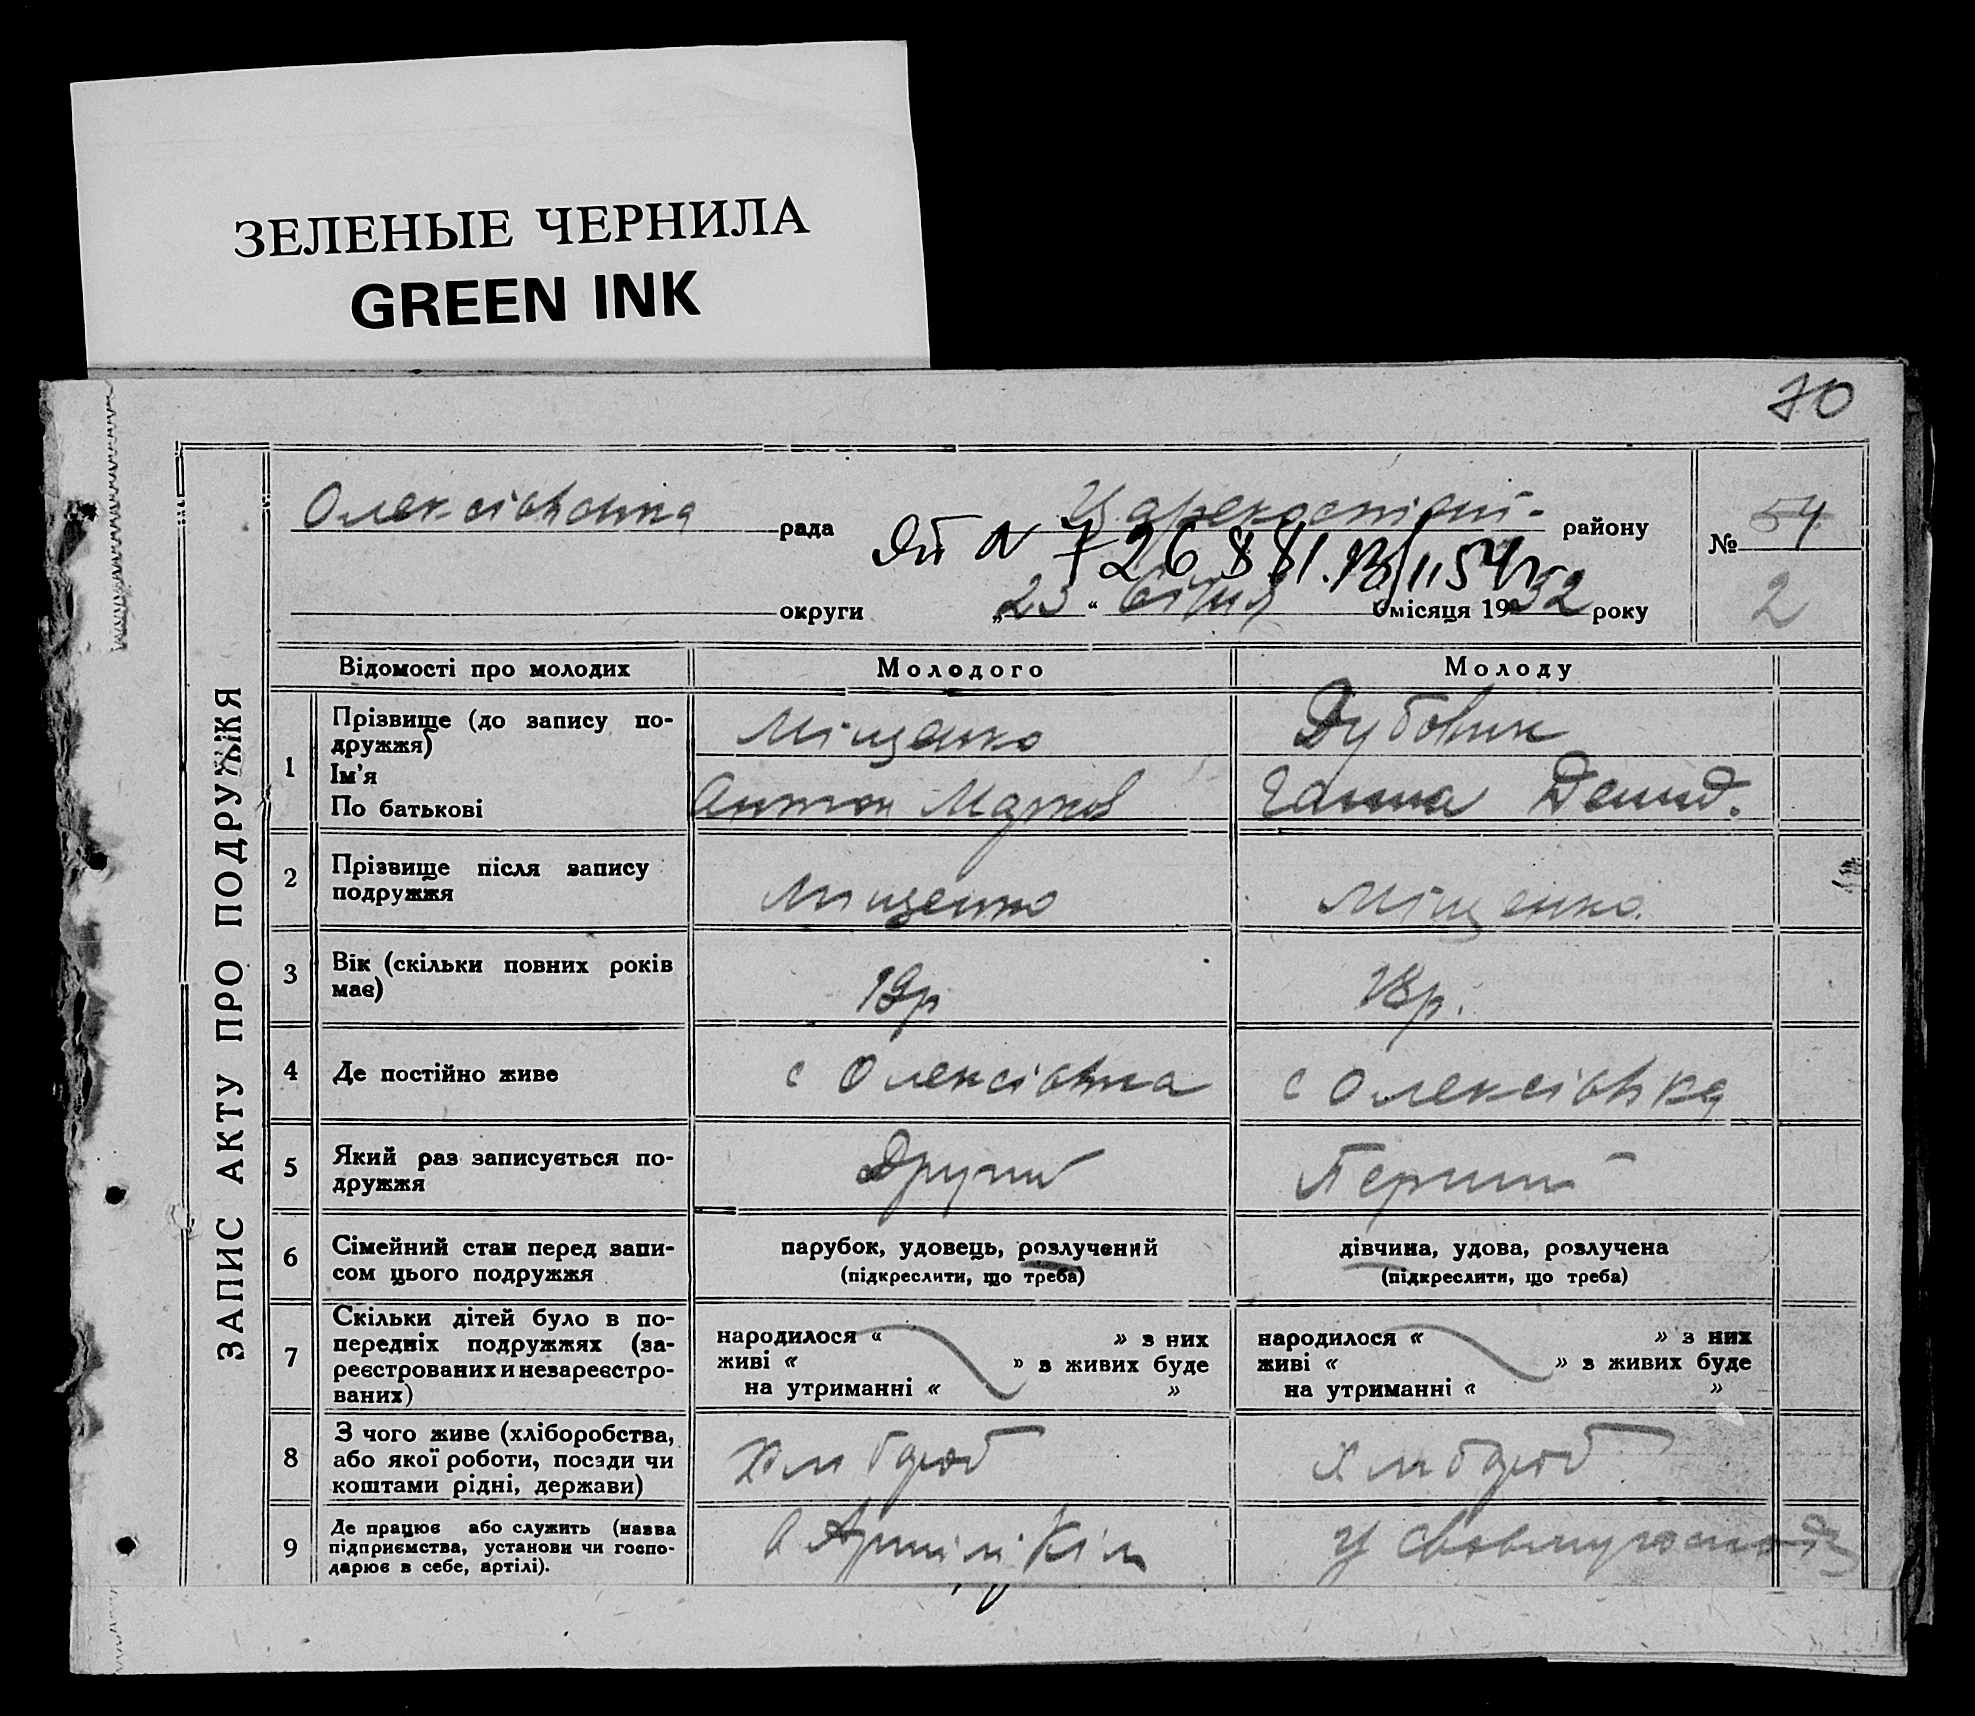 ЗЕЛЕНЫЕ ЧЕРНИЛА
GREEN INK
70
ЗАПИС АКТУ ПРО ПОДРУЖЖЯ
Олексіївська рада району
№ 54
округи „23“ Січня місяця 1932 року
2
Відомості про молодих Молодого Молоду
1 Прізвище (до запису по-
дружжя)
Ім'я
По батькові
Міщенко Дубовик
Антон Марков Ганна Демид.
2 Прізвище після запису
подружжя
Міщенко Міщенко
3 Вік (скільки повних років
має)
19р 18р.
4 Де постійно живе с Олексіївка с Олексіївка
5 Який раз записується по-
дружжя
Другий Перший
6 Сімейний стан перед запи-
сом цього подружжя
парубок, удовець, розлучений дівчина, удова, розлучена
(підкреслити, що треба) (підкреслити, що треба)
7 Скільки дітей було в по-
передніх подружжях (за-
реєстрованих и незареєстро-
ваних)
народилося “ » з них народилося “ » з них
живі “ » з живих буде живі “ » з живих буде
на утриманні “ » на утриманні “ »
8 З чого живе (хліборобства,
або якої роботи, посади чи
коштами рідні, держави)
Хлібороб Хлібороб
9 Де працює або служить (назва
підприємства, установи чи госпо-
дарює в себе, артілі).